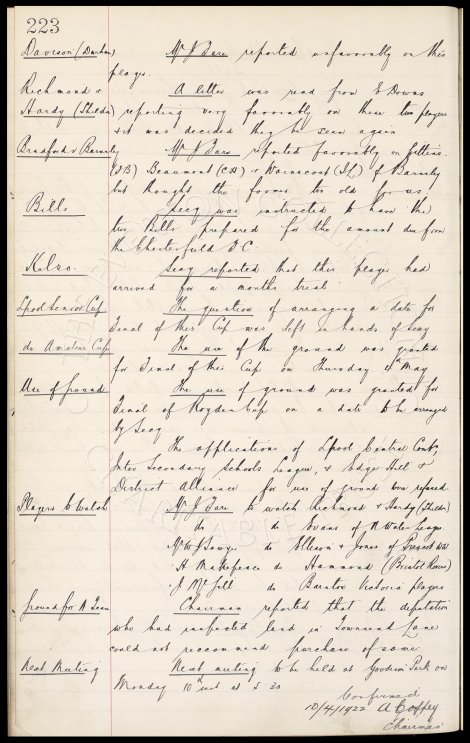 223
Davison (Durham) Mr J Fare reported unfavorably on this
player.
Richmond & A letter was read from E Downs
Hardy (Shildon) reporting very favorably on these two players
& it was decided they be seen again
Bradford v Barnsley Mr J Fare reported favorably on Gittins
(I B) Beaumont (C H) & Wainscoat (I L) of Barnsley
but thought the former too old for us
Bills Secy was instructed to have the
two Bills prepared for the amount due from
the Chesterfield F.C.
Kelso. Secy reported that this player had
arrived for a months trial
Lpool Senior Cup The question of arranging a date for
Final of this Cup was left in hands of Secy
do Amateur Cup The use of the ground was granted
for Final of this Cup on Thursday 4th May
Use of Ground The use of ground was granted for
Final of Roydon Cup on a date to be arranged
by Secy
The applications of Lpool Central Comb,
Inter Secondary Schools League, & Edge Hill &
District Alliance for use of ground were refused
Players to Watch Mr J Fare to watch Richmond & Hardy (Shildon)
do do Evans of N Wales League
Mr W J Sawyer do Ellison & Jones of Prescot
H Makepeace do Hammond (Bristol Rovers)
J McGill do Barnton Victoria players
Ground for A Team Chairman reported that the deputation
who had inspected land in Townsend Lane
could not reccommend purchase of same
Next Meeting Next meeting to be held at Goodison Park on
Monday 10th inst at 5 30
Confirmed
10/4/1922 A Coffey
Chairman